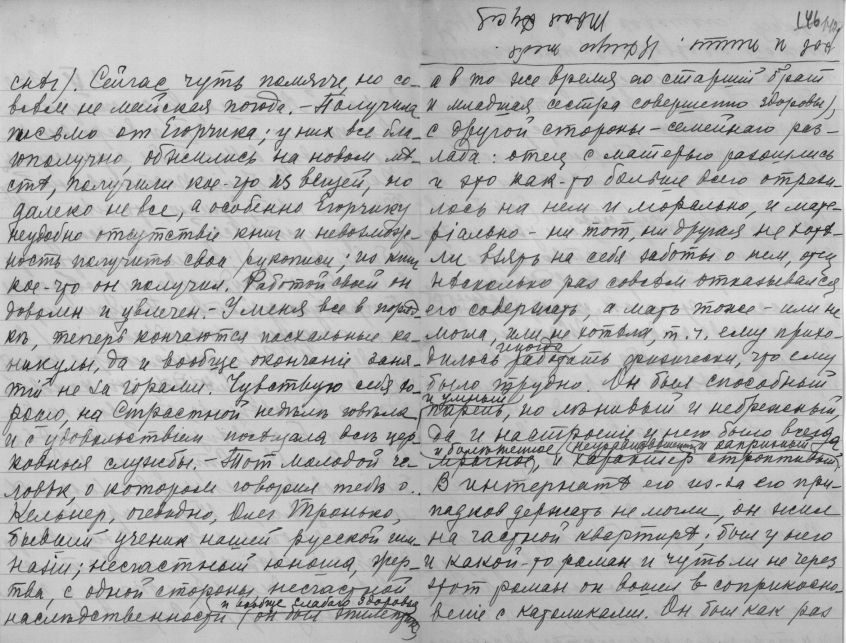 146
снег). Сейчас чуть помягче, но со-
всем не майская погода. – Получила
письмо от Егорчика; у них все бла-
гополучно, обжились на новом мѣ-
стѣ, получили кое-что из вещей, но
далеко не все, а особенно Егорчику
неудобно отсутствіе книг и невозмож-
ность получить свои рукописи; из книг
кое-что он получил. Работой своей он
доволен и увлечен. – У меня все в поряд-
кѣ, теперь кончаются пасхальные ка-
никулы, да и вообще окончаніе заня-
тій не за горами. Чувствую себя хо-
рошо, на Страстной недѣлѣ говѣла
и с удовольствіем посѣщала всѣ цер-
ковныя службы. – Тот молодой че-
ловѣк, о котором говорил тебѣ о.
Кельнер, очевидно, Олег Тронько,
бывший ученик нашей русской гим-
назіи; несчастный юноша, жер-
тва, с одной стороны, несчастной
наслѣдственности и вообще слабаго здоровья (он был эпилептик,
а в то же время его старшій брат
и младшая сестра совершенно здоровы),
с другой стороны – семейнаго раз-
лада: отец с матерью разошлись
и это как-то больше всего отрази-
лось на нем и морально, и мате-
ріально – ни тот, ни другая не хотѣ-
ли взять на себя заботы о нем, отец
нѣсколько раз совсѣм отказывался
его содержать, а мать тоже – или не
могла, или не хотѣла, т. ч. ему прихо-
дилось иногда работать физически, что ему
было трудно. Он был способный
и умный парень, но лѣнивый и небрежный,
да и настроеніе у него было всегда
мрачное, и болѣзненное, неуравновѣшенный и капризный и характер строптивый.
В интернатѣ его из-за его при-
падков держать не могли, он жил
на частной квартирѣ; был у него
и какой-то роман и чуть ли не через
этот роман он вошел в соприкосно-
веніе с католиками. Он был как раз